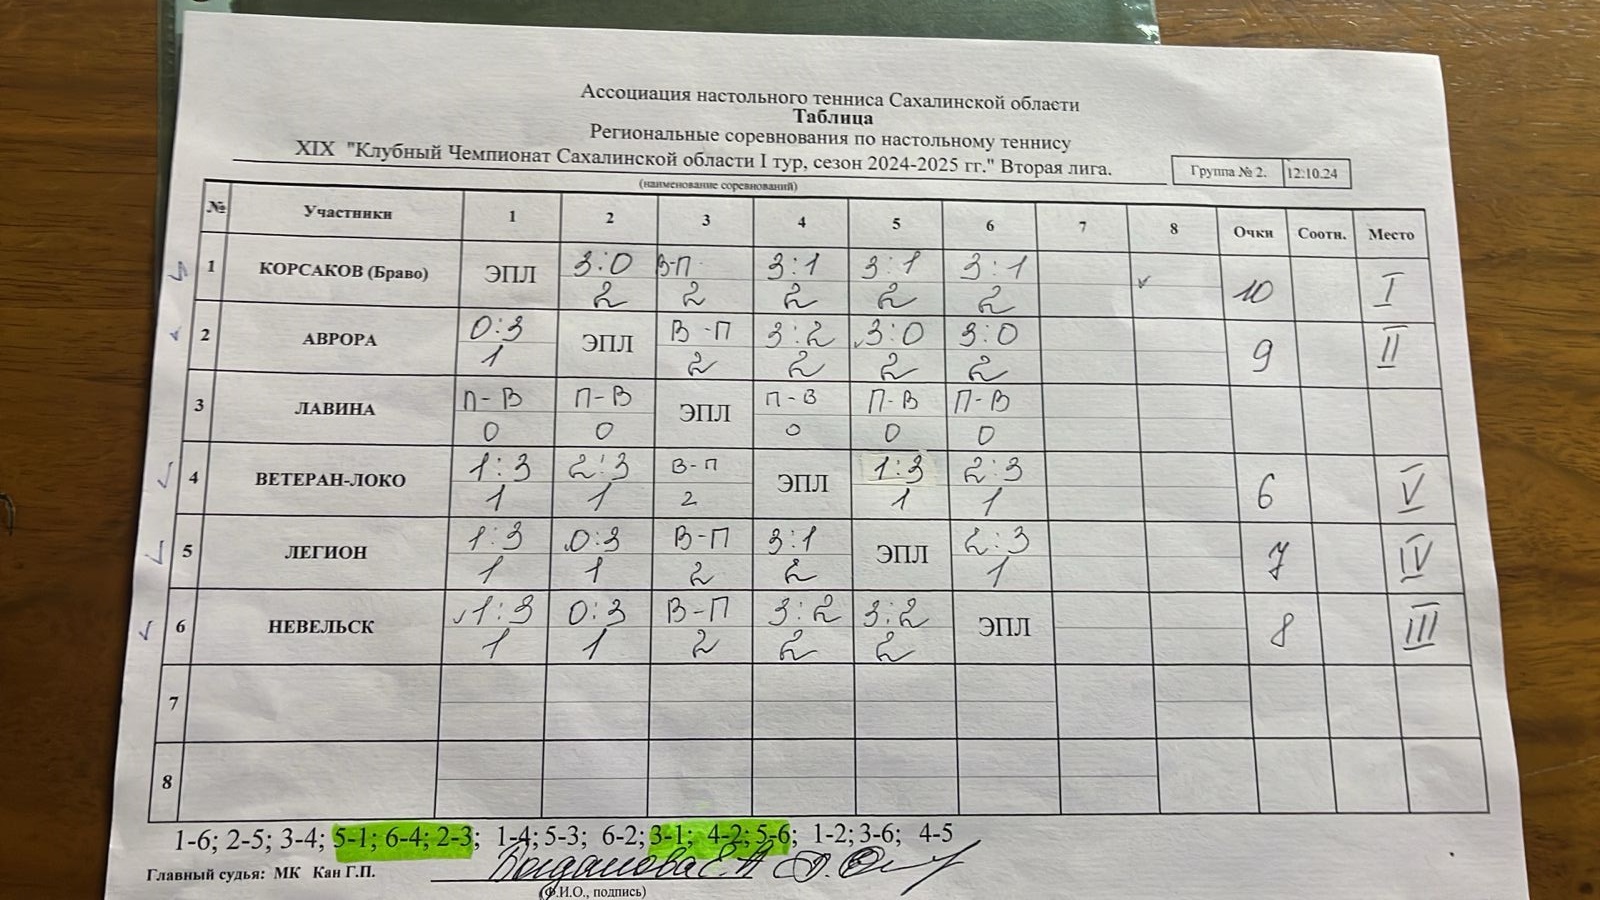 Ассоциация настольного тенниса Сахалинской области
Таблица
Региональные соревнования по настольному теннису
XIX "Клубный Чемпионат Сахалинской области I тур, сезон 2024-2025 гг." Вторая лига.
Группа № 2. 12.10.24
(наименование соревнований)
№ Участники 1 2 3 4 5 6 7 8 Очки Соотн. Место
1 КОРСАКОВ (Браво) ЭПЛ 3:0 В-П 3:1 3:1 3:1 10 I
2 2 2 2 2
2 АВРОРА 0:3 ЭПЛ В-П 3:2 3:0 3:0 9 II
1 2 2 2 2
3 ЛАВИНА П-В П-В ЭПЛ П-В П-В П-В
0 0 0 0 0
4 ВЕТЕРАН-ЛОКО 1:3 2:3 В-П ЭПЛ 1:3 2:3 6 V
1 1 2 1 1
5 ЛЕГИОН 1:3 0:3 В-П 3:1 ЭПЛ 2:3 7 IV
1 1 2 2 1
6 НЕВЕЛЬСК 1:3 0:3 В-П 3:2 3:2 ЭПЛ 8 III
1 1 2 2 2
7
8
1-6; 2-5; 3-4; 5-1; 6-4; 2-3; 1-4; 5-3; 6-2; 3-1; 4-2; 5-6; 1-2; 3-6; 4-5
Главный судья: МК Кан Г.П. Богданова
(Ф.И.О., подпись)